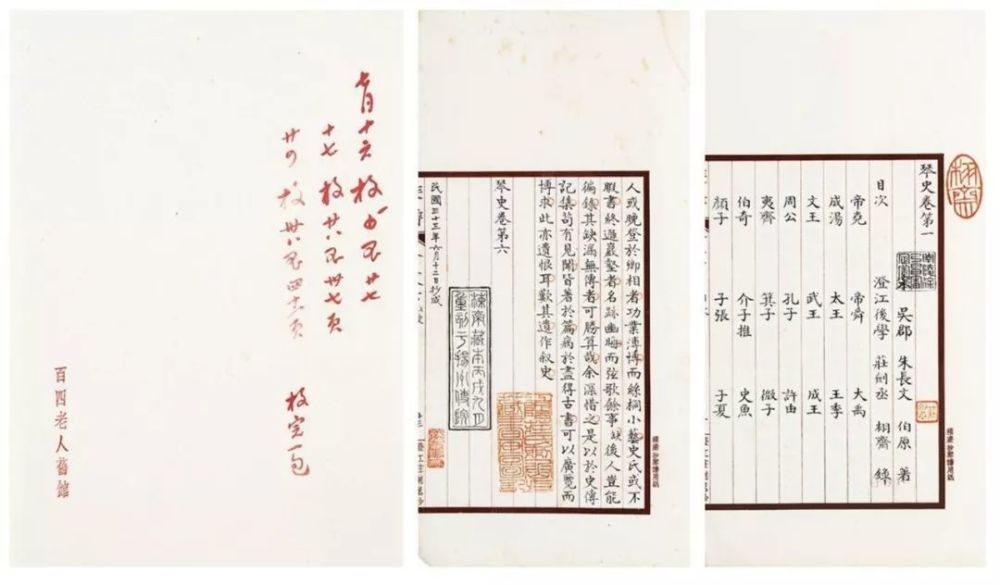 琴史卷第一
吳郡 朱長文 伯原 著
澄江後學 莊劍丞 栩齋 錄
目次
帝堯 帝舜 大禹
成湯 太王 王季
文王 武王 成王
周公 孔子 許由
夷齊 箕子 微子
伯奇 介子推 史魚
顏子 子張 子夏
人或晚登於卿相者功業溥博而絲桐小藝史氏或不
暇書終遯巖壑者名跡幽晦而弦歌餘事缺後人豈能
徧錄其缺漏無傳者可勝算哉余深惜之是以於史傳
記集苟有見聞皆著於篇病於盡得古書可以廣覽而
博求此亦遺恨耳歎其遺作叙史
琴史卷第六
棟亭藏本丙戌九月
重刻于揚州使院
民國三十三年六月十二日抄成
七月十六校 至廿七
十七 校 廿八至卅七頁
廿四 校 卅八至四十 頁
校完一包
百四老人舊館